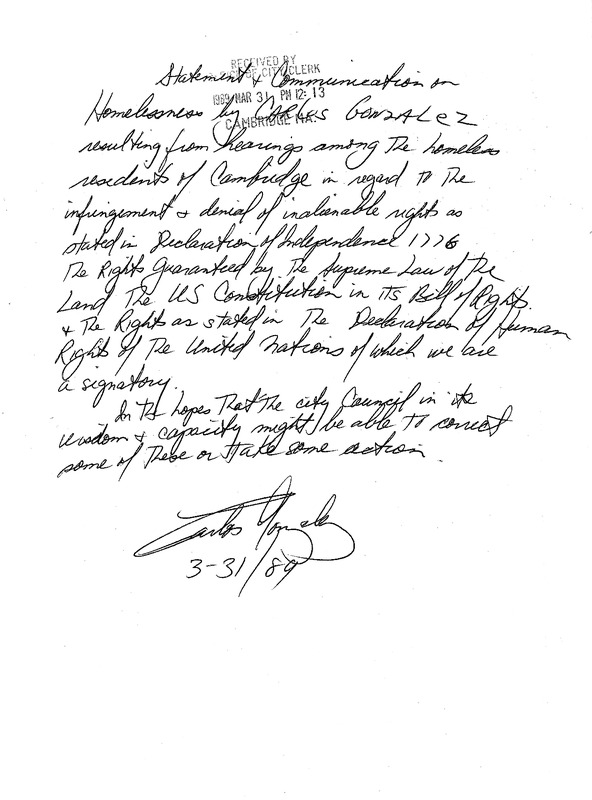 RECEIVED BY
OFFICE CITY CLERK
1989 MAR 31 PM 12: 13
CAMBRIDGE MA.
Statement & Communication on
Homelessness by CARLOS GONZALEZ
resulting from hearings among The homeless
residents of Cambridge in regard to The
infringement & denial of inalienable rights as
stated in Declaration of Independence 1776
The Rights Guaranteed by The Supreme Law of The
Land The US Constitution in its Bill of Rights.
& The Rights as stated in The Declaration of Human
Rights of The United Nations of which we are
a signatory.
In The hopes That The city Council in its
wisdom & capacity might be able to correct
some of These or take some action.
Carlos Gonzalez
3-31/89